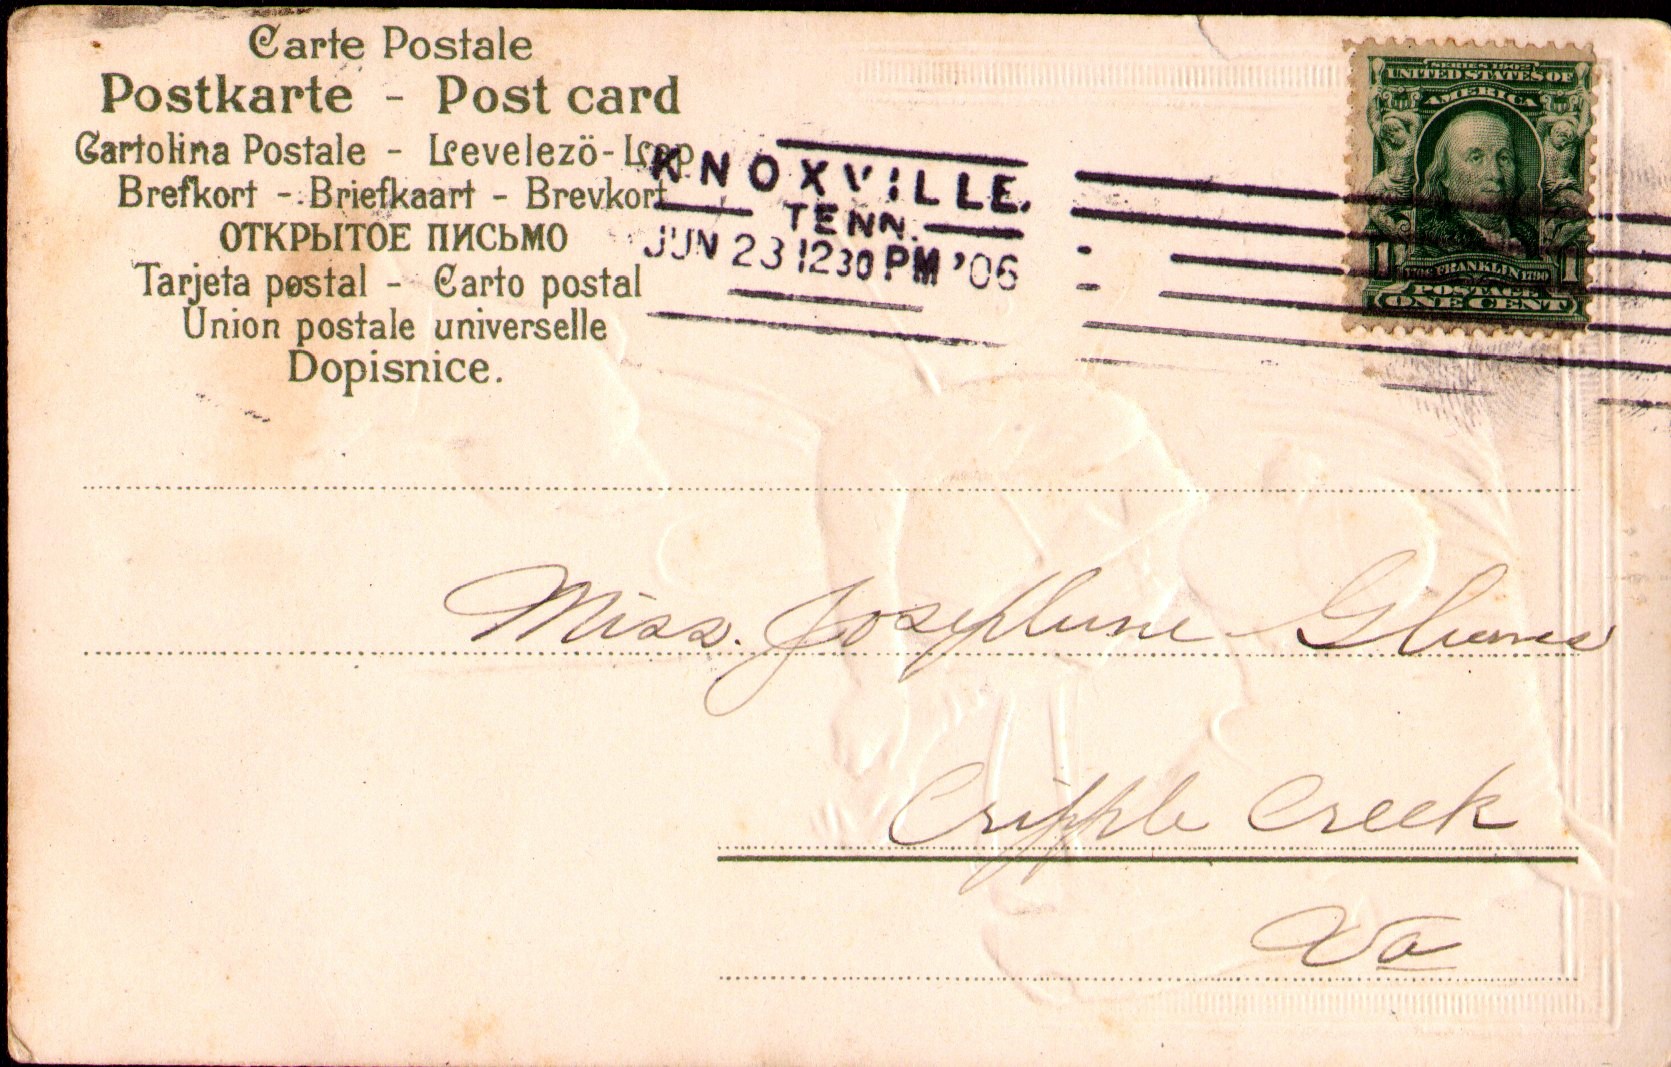 Carte Postale
Postkarte - Post card
Cartolina Postale - Levelezö-Lap
Brefkort - Briefkaart - Brevkort
ОТКРЫТОЕ ПИСЬМО
Tarjeta postal - Carto postal
Union postale universelle
Dopisnice.
KNOXVILLE.
TENN.
JUN 23 1230 PM '06
SERIES 1902
UNITED STATES OF
AMERICA
1 1
1706 FRANKLIN 1790
POSTAGE
ONE CENT
Miss. Josephine
Cripple Creek
Va